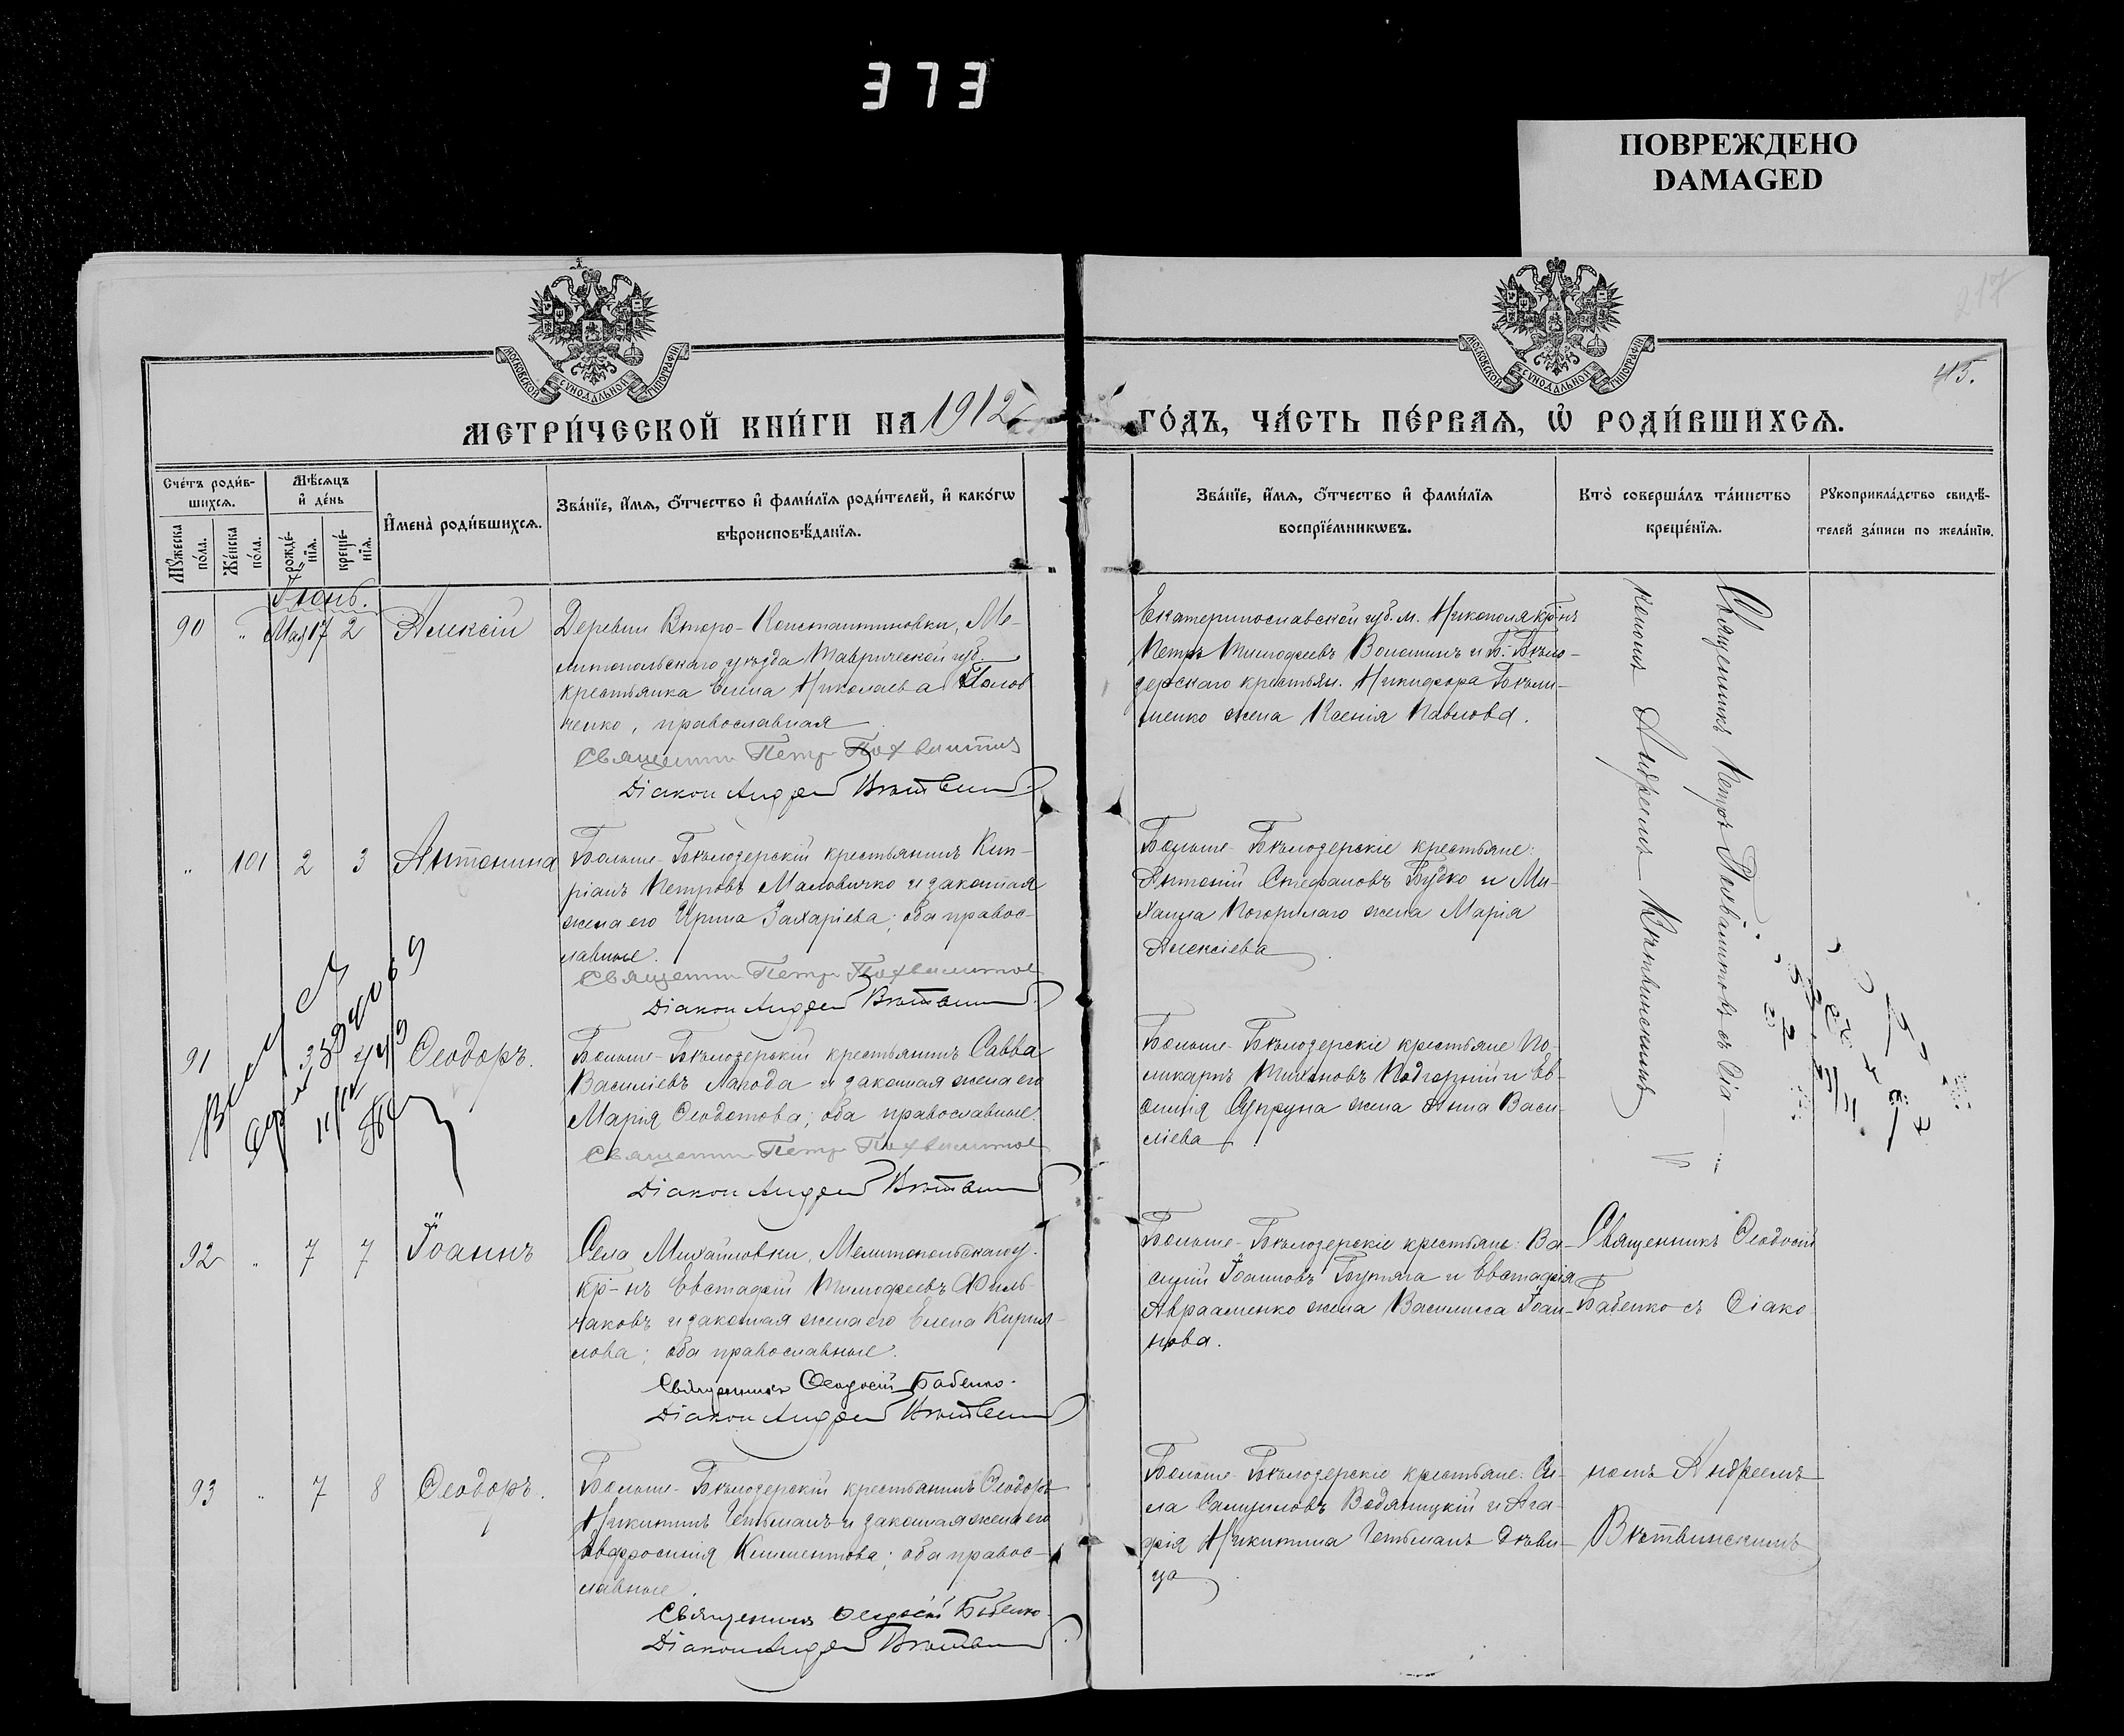 373
ПОВРЕЖДЕНО
DAMAGED
217
45.
МОСКОВСКОЙ СѴНОДАЛЬНОЙ ТИПОГРАФІИ
МОСКОВСКОЙ СѴНОДАЛЬНОЙ ТИПОГРАФІИ
МЕТРИ́ЧЕСКОЙ КНИ́ГИ НА 1912 ГО́ДЪ, ЧА́СТЬ ПЕ́РВАѦ, Ѡ҆ РОДИ́ВШИХСѦ.
Сче́тъ роди́в-
шихсѧ.
Мꙋ́жеска по́ла.
Же́нска по́ла.
Мѣ́сѧцъ
и҆ де́нь
рожде́-
нїѧ.
креще́-
нїѧ.
И҆мена̀ роди́вшихсѧ.
Зва́нїе, и҆́мѧ, ѻ҆́тчество и҆ фами́лїѧ роди́телей, и҆ како́гѡ
вѣроисповѣ́данїѧ.
Зва́нїе, и҆́мѧ, ѻ҆́тчество и҆ фами́лїѧ
воспрїе́мникѡвъ.
Кто̀ соверша́лъ та́инство
креще́нїѧ.
Рꙋкоприкла́дство свидѣ́-
телей за́писи по жела́нїю.
Іюнь.
90 " Мая 17 2 Алексій
Деревни Второ-Константиновки, Ме-
литопольскаго уѣзда Таврической губ.
крестьянка Елена Николаева
ченко, православная
Священникъ Петр Похвалитов
Діакон Андрей Вѣтвин
Екатеринославской губ. м. Никополя кр-нъ
Петръ Тимофеевъ Волошинъ и Б. Бѣло-
зерскаго крестьян. Никифора Бѣли-
менко жена Ксенія Павлова.
Священникъ Петръ Похвалитовъ съ Діа-
кономъ Андреемъ Вѣтвинскимъ
" 101 2 3 Антонина
Больше-Бѣлозерскій крестьянинъ Кип-
ріанъ Петровъ Маловичко и законная
жена его Ирина Захаріева; оба правос-
лавные.
Священник Петр Похвалитов
Діакон Андрей Вѣтвин
Больше-Бѣлозерскіе крестьяне:
Антоній Стефановъ Будко и Ми-
хаила Погорилаго жена Марія
Алексіева
91 Ѳеодоръ.
Больше-Бѣлозерскій крестьянинъ Савва
Василіевъ Лагода и законная жена его
Марія Ѳеодотова; оба православные.
Священник Петр Похвалитов
Діакон Андрей Вѣтвин
Больше-Бѣлозерскіе крестьяне По-
ликарпъ Тихоновъ Подгорній и Ев-
фимія Супруна жена Анна Васи-
ліева
92 " 7 7 Іоаннъ
Села Михайловки, Мелитопольскаго у.
кр-нъ Евстафій Тимофеевъ Филь-
чаковъ и законная жена его Елена Кирил-
лова; оба православные.
Священникъ Ѳеодосій Бабенко.
Діакон Андрей Вѣтвин
Больше-Бѣлозерскіе крестьяне: Ва-
силій Іоанновъ Бутяга и Евстафія
Авраменко жена Василиса Іоан-
нова.
Священникъ Ѳеодосій
Бабенко съ Діако
93 " 7 8 Ѳеодоръ.
Больше-Бѣлозерскій крестьянинъ Ѳеодоръ
Никитинъ Гетьманъ и законная жена его
Евфросинія Климентова; оба правос-
лавные.
Священникъ Ѳеодосій Бабенко.
Діакон Андрей Вѣтвин
Больше-Бѣлозерскіе крестьяне: Си-
ла Самуиловъ Водяницкій и Ага-
фія Никитина Гетьманъ дѣви-
ца
номъ Андреемъ
Вѣтвинскимъ